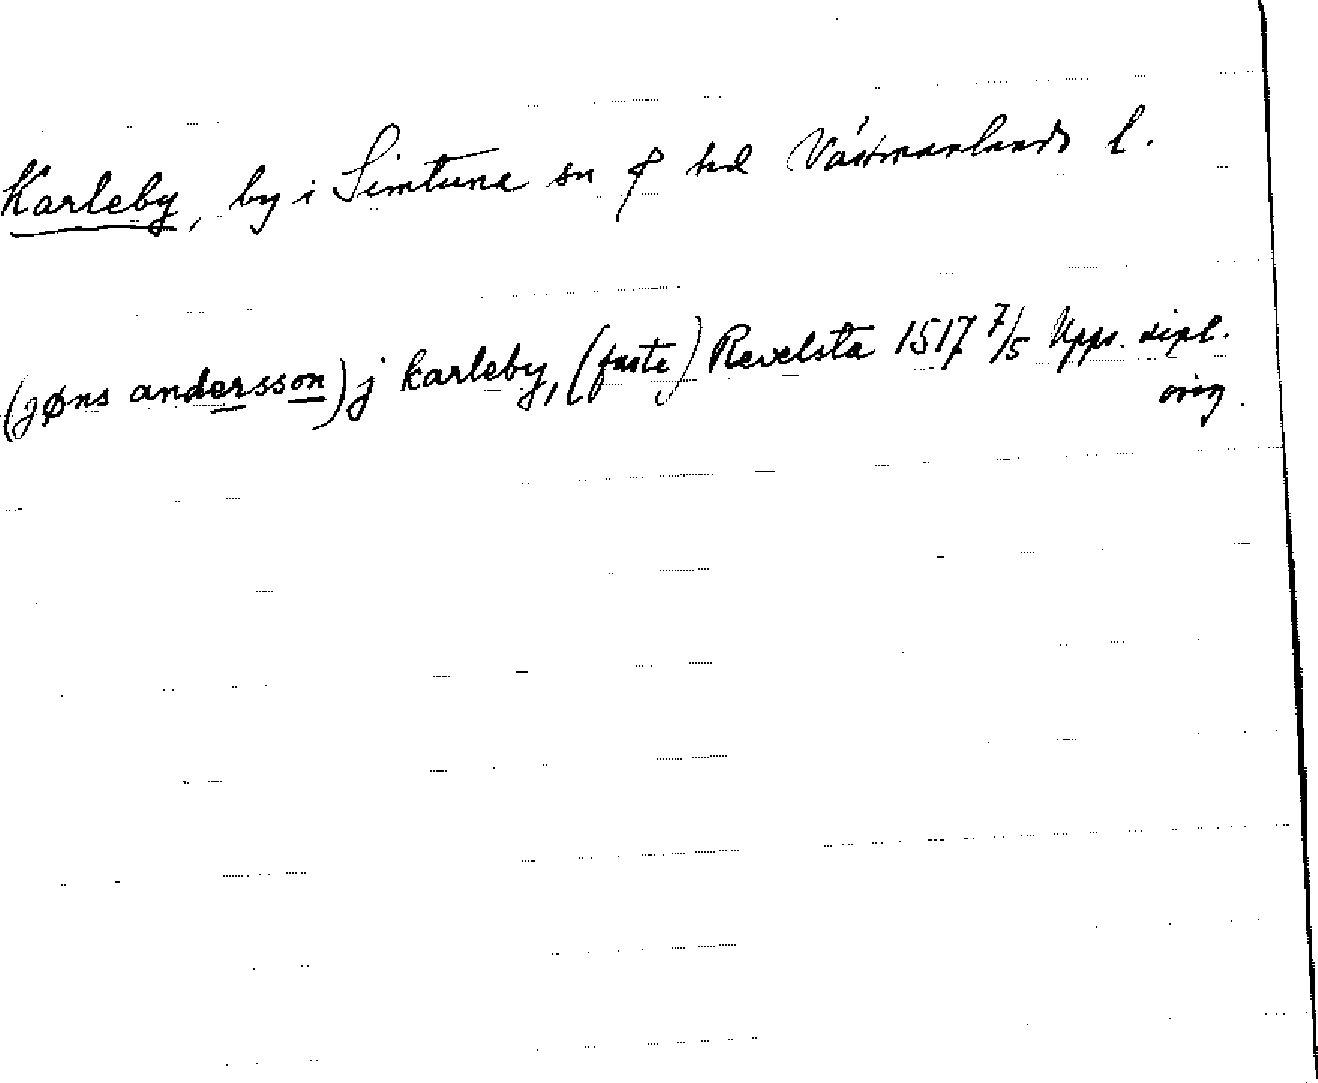 Karleby, by i Simtuna sn & hd Västmanlands l.
(jøns andersson) j karleby, (faste) Revelsta 1517 7/5 Upps. dipl.
orig.